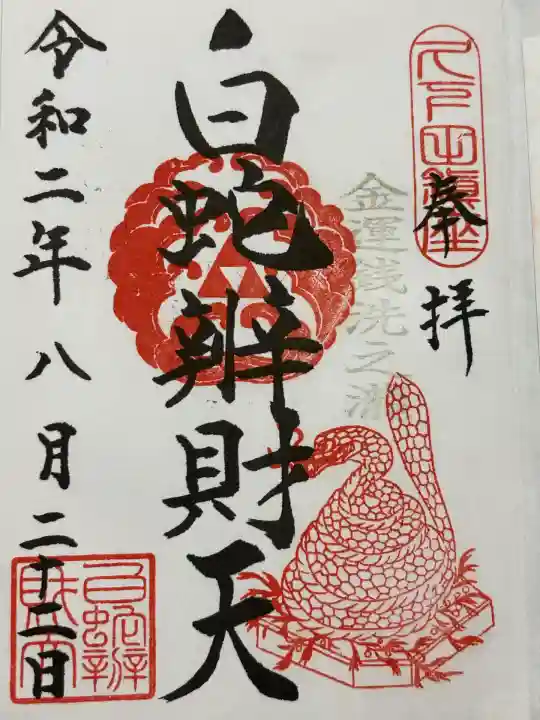 久下田鎮座
奉拝
金運銭洗之
白蛇辨財天
令和二年八月二十二日
白蛇辨